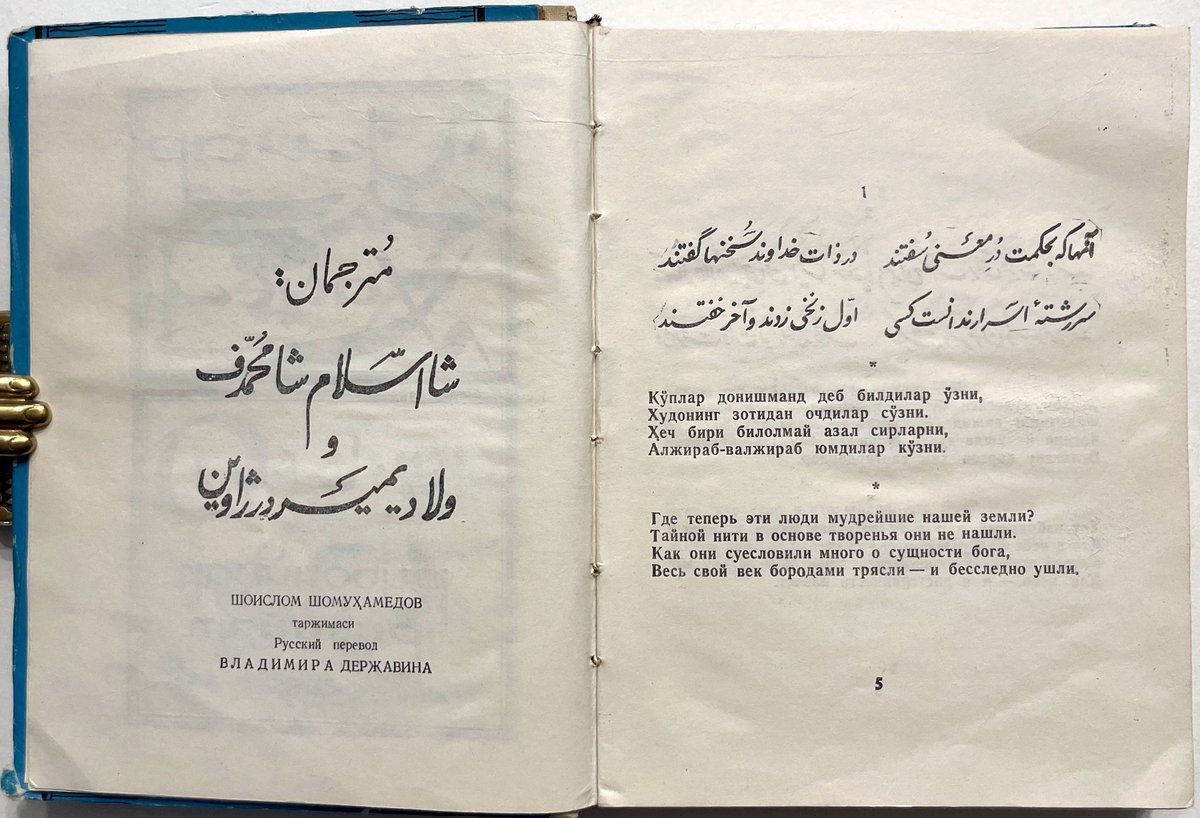 مُترجمان:
شااسّلام شامُحمّدف
و
ولادیمیر درژاوین
ШОИСЛОМ ШОМУҲАМЕДОВ
таржимаси
Русский перевод
ВЛАДИМИРА ДЕРЖАВИНА
1
آنهاکه بحکمت دُرِ معنٔی سُفتند در ذات خداوند سُخنها گفتند
سررشتهٔ اسرار ندانست کسی اوّل زنخی زدند و آخر خفتند
*
Кўплар донишманд деб билдилар ўзни,
Худонинг зотидан очдилар сўзни.
Ҳеч бири билолмай азал сирларни,
Алжираб-валжираб юмдилар кўзни.
*
Где теперь эти люди мудрейшие нашей земли?
Тайной нити в основе творенья они не нашли.
Как они суесловили много о сущности бога,
Весь свой век бородами трясли — и бесследно ушли.
5